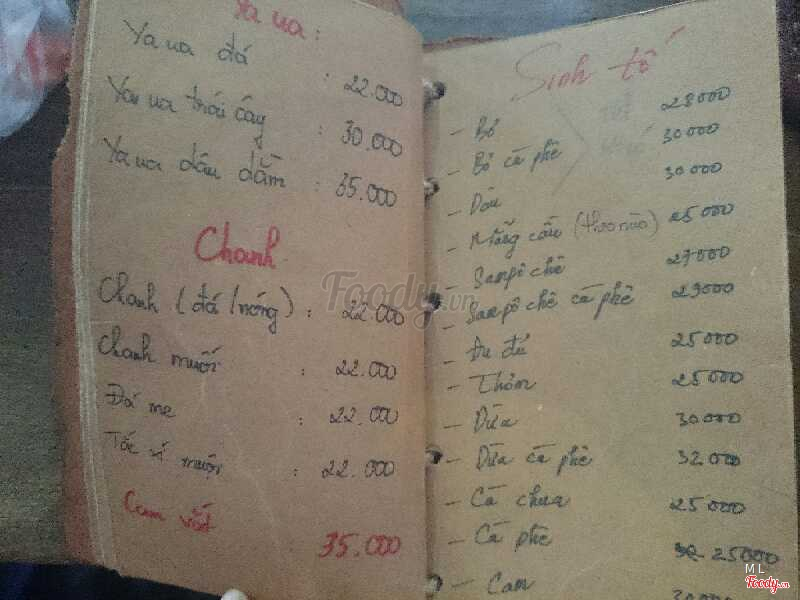 Ya ua :
Ya ua đá : 22.000
Ya ua trái cây : 30.000
Ya ua dâu dằm : 35.000
Chanh
Chanh (đá / nóng) : 22.000
Chanh muối : 22.000
Đá me : 22.000
Tắc xí muội : 22.000
Cam vắt 35.000
Sinh tố
- Bơ 28000
- Bơ cà phê 30000
- Dâu 30000
- Mãng cầu (theo mùa) 25000
- Sampôchê 27000
- Sampôchê cà phê 29000
- Đu đủ 25000
- Thơm 25000
- Dừa 30000
- Dừa cà phê 32000
- Cà chua 25000
- Cà phê 25000
- Cam 30000
Foody.vn
ML
Foody.vn